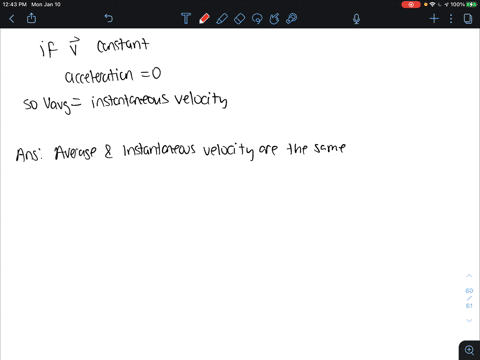 12:43 PM Mon Jan 10
100%
if v⃗ constant
acceleration = 0
so Vavg = instantaneous velocity
Ans: Average & Instantaneous velocity are the same
60
/
61